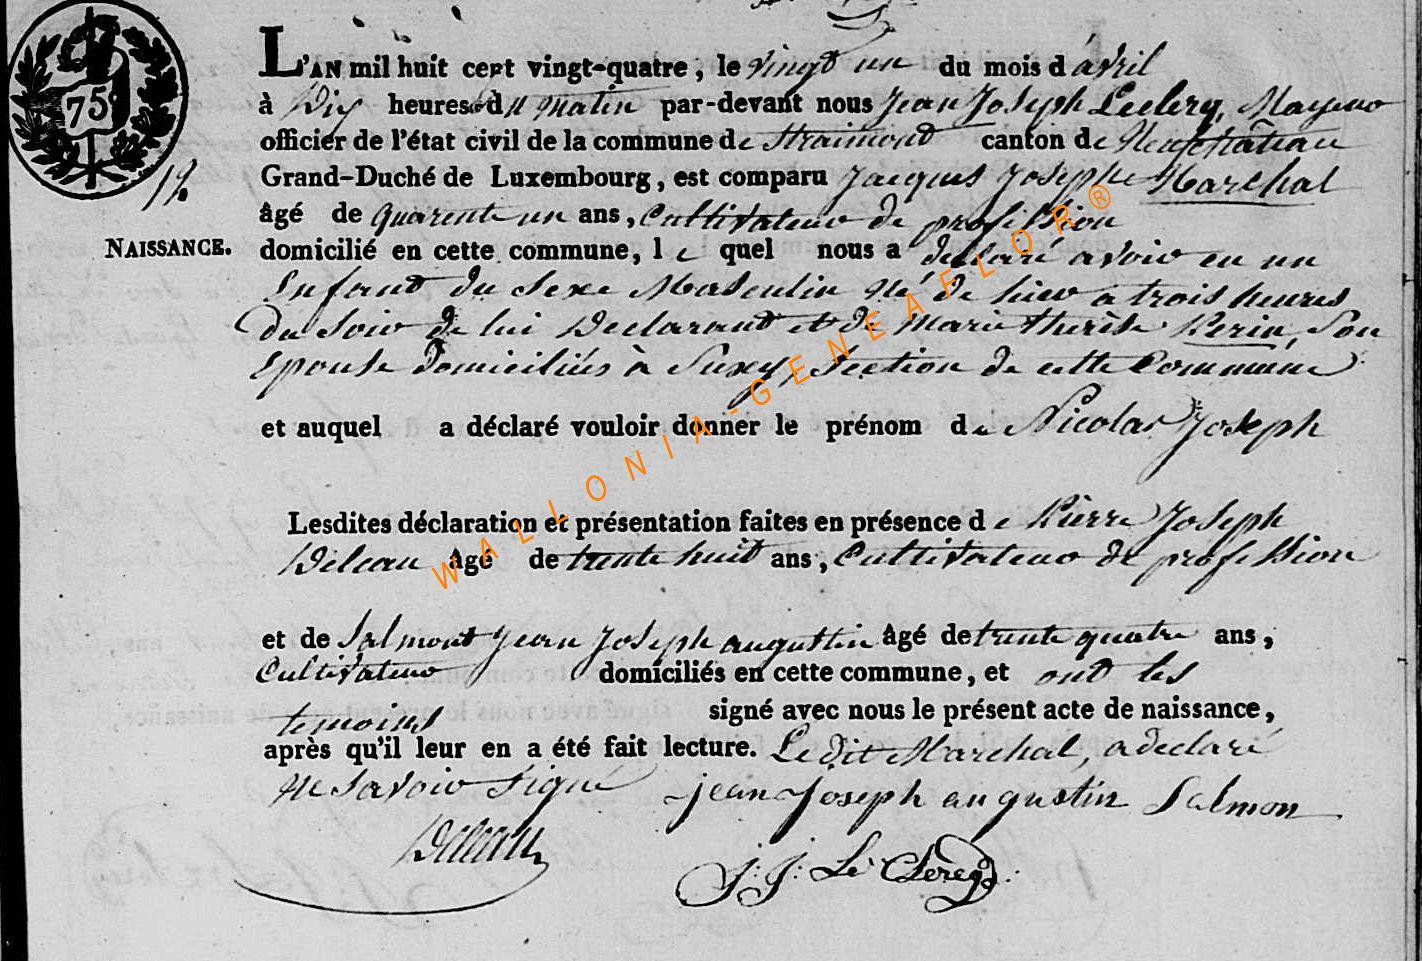 75
12
L'AN mil huit cent vingt-quatre, le vingt un du mois d'avril
à Dix heures du matin par-devant nous Jean Joseph Leclerq, Mayeur
officier de l'état civil de la commune de Straimont canton de Neufchâteau
Grand-Duché de Luxembourg, est comparu Jacques Josephe Marchal
âgé de quarente un ans, Cultivateur de profession
NAISSANCE.
domicilié en cette commune, le quel nous a declaré avoir eu un
Enfant du Sexe Masculin né de hier a trois heures
du Soir de lui Declarant et de Marie therèse Perin, Son
Epouse domiciliés à Suxy, Section de cette Commune
et auquel a déclaré vouloir donner le prénom de Nicolas Joseph
Lesdites déclaration et présentation faites en présence de Pierre Joseph
Deleau âgé de trente huit ans, Cultivateur de profession
et de Salmont Jean Joseph augustin âgé de trente quatre ans,
Cultivateur domiciliés en cette commune, et ont les
temoins signé avec nous le présent acte de naissance,
après qu'il leur en a été fait lecture. Le dit Marchal, a declaré
ne Savoir Signé jean Joseph augustin Salmon
Deleau J: J: Le Clereq
WALLONIA-GENEAFLOR®